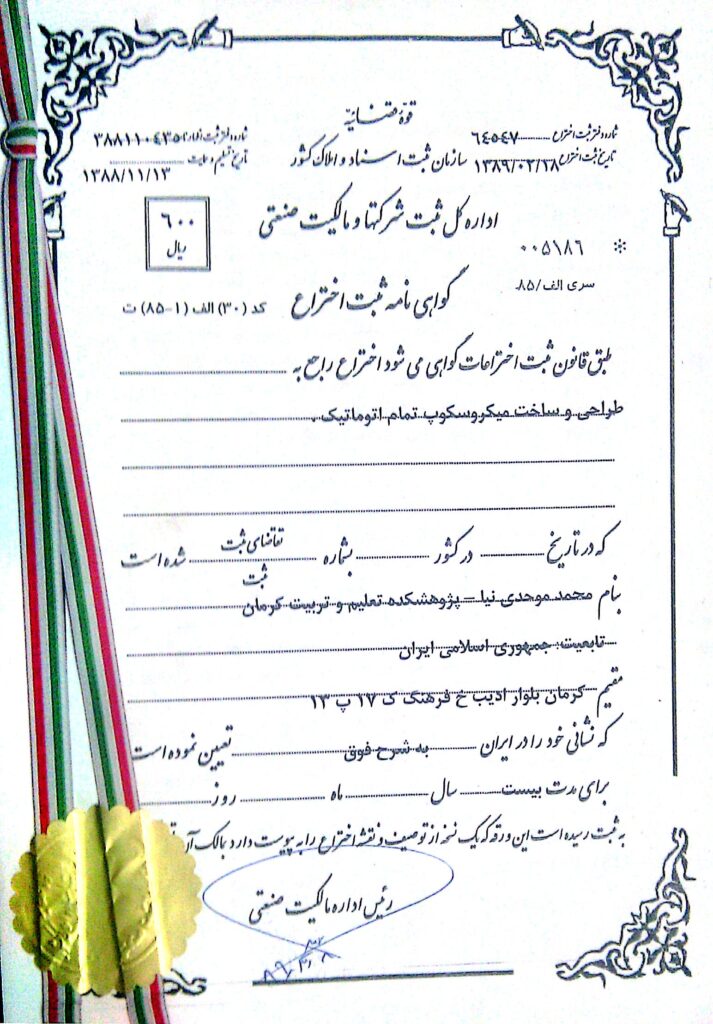 قوۀ قضائیه
شماره دفتر ثبت اختراع ٦٤٥٤٧
شماره دفتر ثبت اظهارنامه ٣٨٨١١٠٤٣٥
تاریخ ثبت اختراع ١٣٨٩/٠٢/٢٨
سازمان ثبت اسناد و املاک کشور
تاریخ تسلیم
١٣٨٨/١١/١٣
اداره کل ثبت شرکتها و مالکیت صنعتی
٦٠٠
ریال
* ٠٠٥١٨٦
سری الف/٨٥
گواهی نامه ثبت اختراع
کد (٣٠) الف (١-٨٥) ت
طبق قانون ثبت اختراعات گواهی می شود اختراع راجع به
طراحی و ساخت میکروسکوپ تمام اتوماتیک .
که در تاریخ در کشور بشماره تقاضای ثبت شده است
ثبت
بنام محمد موحدی نیا – پژوهشکده تعلیم و تربیت کرمان
تابعیت: جمهوری اسلامی ایران
مقیم کرمان بلوار ادیب خ فرهنگ ک ١٧ پ ١٣
که نشانی خود را در ایران به شرح فوق تعیین نموده است
برای مدت بیست سال ماه روز
به ثبت رسیده است این ورقه که یک نسخه از توصیف و نقشه اختراع را به پیوست دارد بمالک آن
رئیس اداره مالکیت صنعتی